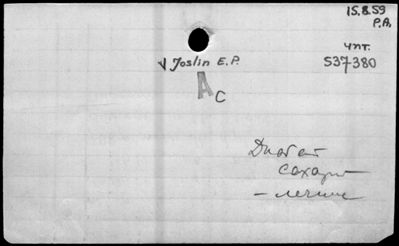 15.8.59
P.A.
чпт.
√ Joslin E.P. 537380
A C
Диабет
сахарн
– лечние